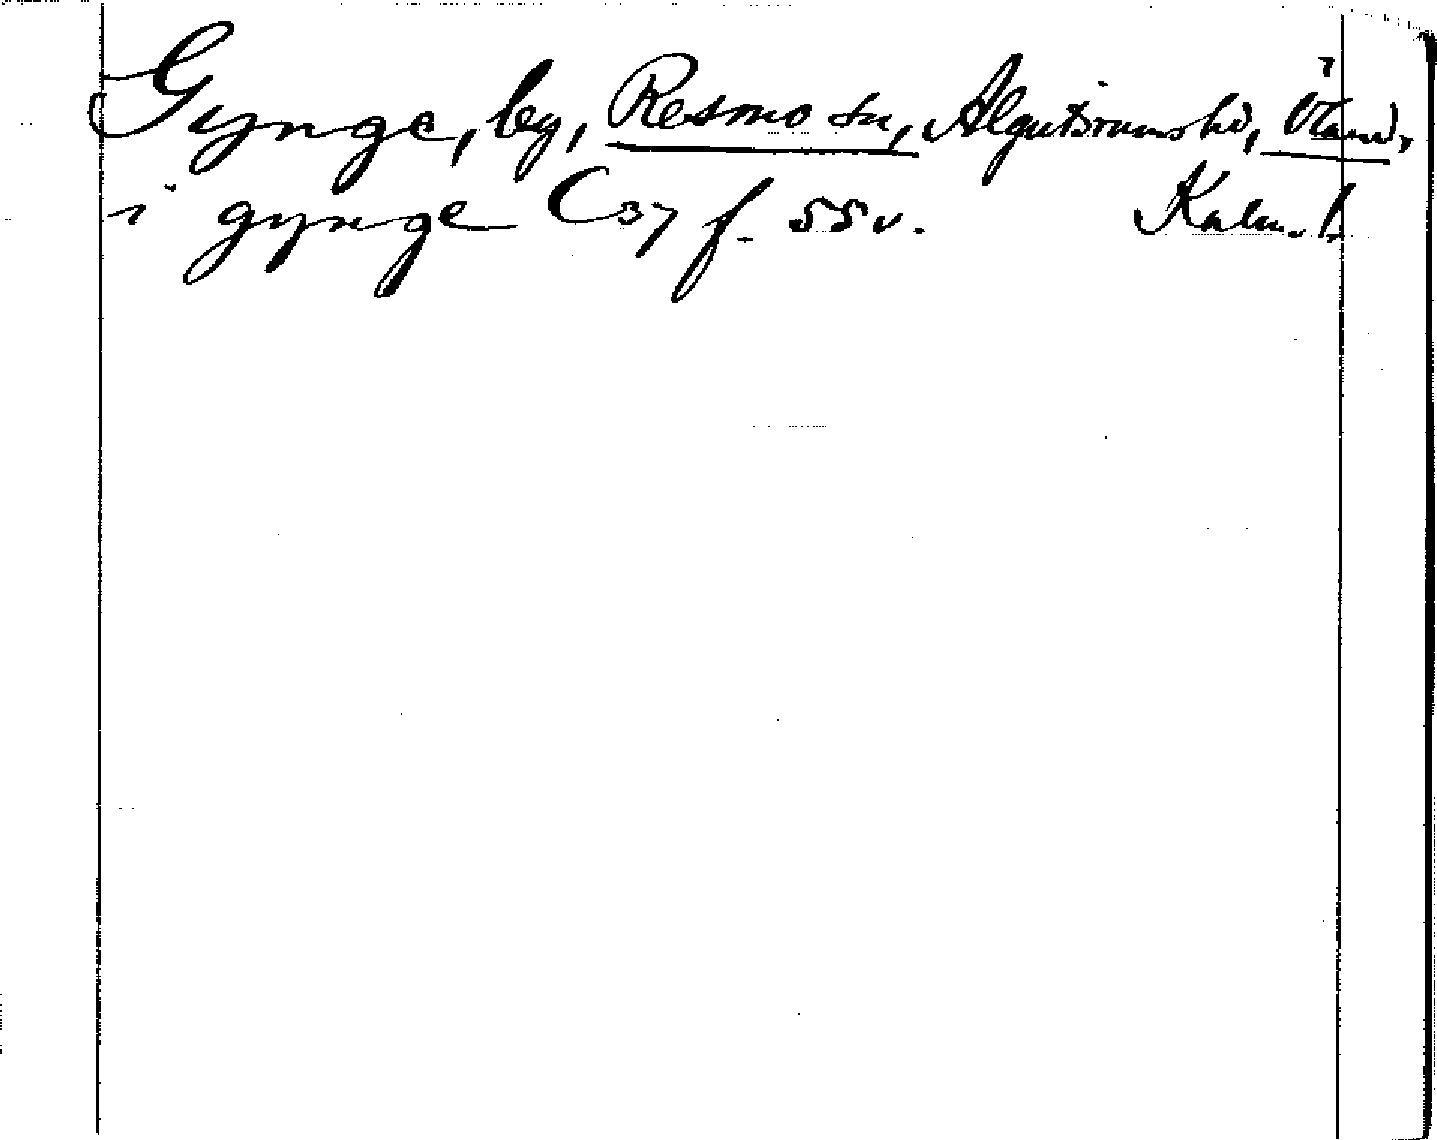 Gynge, by, Resmo sn, Algutsrums hd, Öland,
i gynge C 37 f. 55 v. Kalm. l.